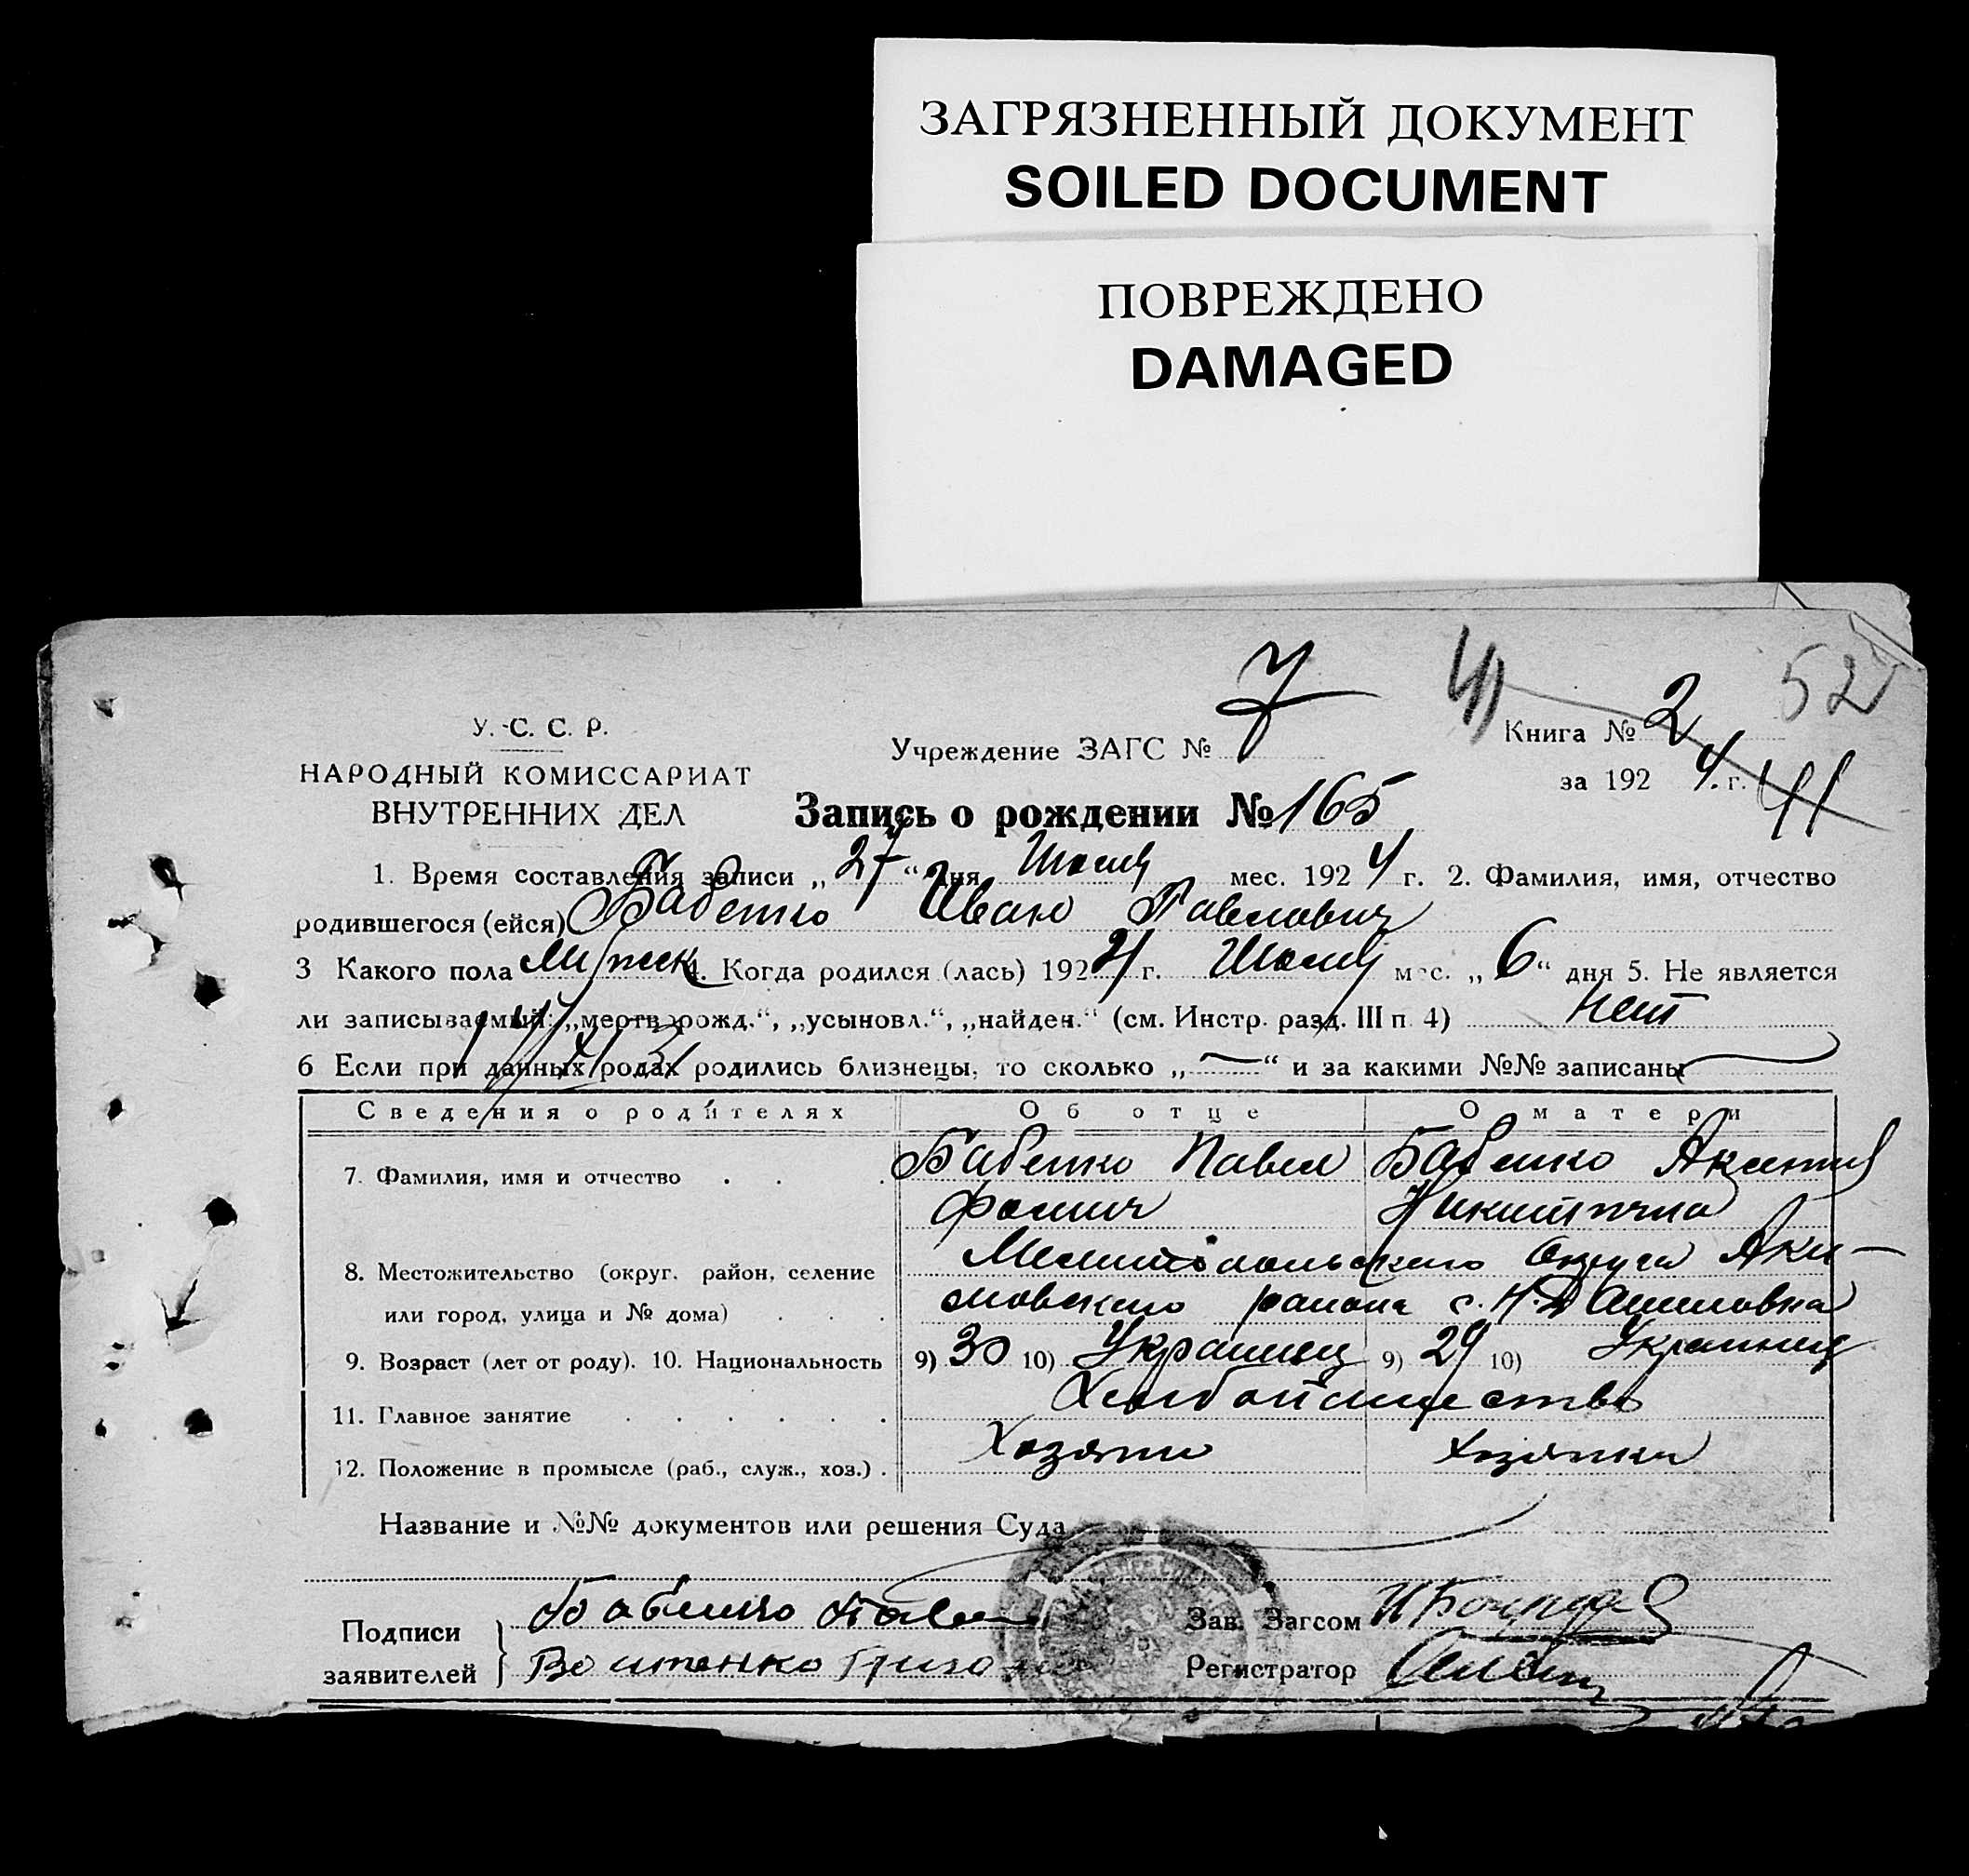 ЗАГРЯЗНЕННЫЙ ДОКУМЕНТ
SOILED DOCUMENT
ПОВРЕЖДЕНО
DAMAGED
41 52
У. С. С. Р.
НАРОДНЫЙ КОМИССАРИАТ
ВНУТРЕННИХ ДЕЛ
Учреждение ЗАГС № 7
Книга № 2
за 192 4. г. 41
Запись о рождении № 165
1. Время составления записи „ 27 “ дня Июля мес. 192 4 г. 2. Фамилия, имя, отчество
родившегося (ейся) Бабенко Иван Павлович
3 Какого пола Мужск 4. Когда родился (лась) 192 4 г. Июля мес. „ 6 “ дня 5. Не является
ли записываемый: „мертворожд.“, „усыновл.“, „найден.“ (см. Инстр. разд. III п 4) нет
6 Если при данных родах родились близнецы, то сколько „ — “ и за какими №№ записаны
Сведения о родителях Об отце О матери
7. Фамилия, имя и отчество . . . Бабенко Павел Бабенко Аксения
Фомич Никитична
8. Местожительство (округ, район, селение Мелитопольского Округа Аки-
или город, улица и № дома) . . . мовского района с.
9. Возраст (лет от роду). 10. Национальность 9) 30 10) Украинец 9) 29 10) Украинец
11. Главное занятие . . . . . . Хлебопашество
12. Положение в промысле (раб., служ., хоз.) . Хозяин Хозяйка
Название и №№ документов или решения Суда
Подписи
заявителей
Бабенко Павел
Войтенко
Зав. Загсом
Регистратор